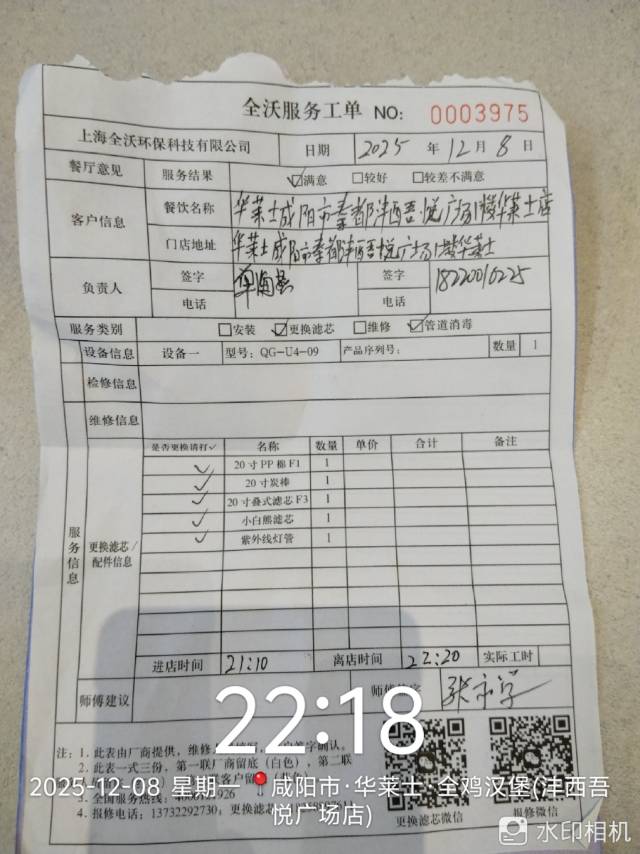 全沃服务工单 NO: 0003975
上海全沃环保科技有限公司 日期 2025 年 12 月 8 日
餐厅意见 服务结果 ☑满意 □较好 □较差不满意
客户信息 餐饮名称 华莱士咸阳市秦都沣西吾悦广场1楼华莱士店
门店地址 华莱士咸阳市秦都沣西吾悦广场1楼华莱士
负责人 签字 签字 18220016225
电话 电话
服务类别 □安装 ☑更换滤芯 □维修 ☑管道消毒
设备信息 设备一 型号: QG-U4-09 产品序列号: 数量 1
检修信息
维修信息
服务信息 更换滤芯/配件信息
是否更换请打✓ 名称 数量 单价 合计 备注
✓ 20寸PP棉F1 1
✓ 20寸炭棒 1
✓ 20寸叠式滤芯F3 1
✓ 小白熊滤芯 1
✓ 紫外线灯管 1
进店时间 21:10 离店时间 22:20 实际工时
师傅建议 师傅签字
22:18
注: 1. 此表由厂商提供, 签字确认。
2. 此表一式三份, 第一联厂商留底(白色), 第二联
3. 全国服务热线:
4. 报修电话: 13732292730; 更换滤芯
更换滤芯微信 报修微信
2025-12-08 星期一 咸阳市·华莱士·全鸡汉堡(沣西吾
悦广场店)
水印相机